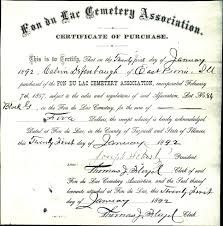 Fon du Lac Cemetery Association.
CERTIFICATE OF PURCHASE.
This is to Certify, That on the Twenty first day of January
1892, Calvin of East Peoria Ill
purchased of the FON DU LAC CEMETERY ASSOCIATION, incorporated February
7th 1857, subject to the rules and regulations of said Association, Lot No. 84
Block G in Fon du Lac Cemetery, for the sum of
Five
Dollars, the receipt whereof is hereby acknowledged.
Dated at Fon du Lac, in the County of Tazewell and State of Illinois,
this Twenty First day of January 1892
Joseph
President.
Thomas J. Clerk
Fon du Lac Cemetery Association, and the
at Fon du Lac, this Twenty First
day of January 1892
Thomas J. Clerk.